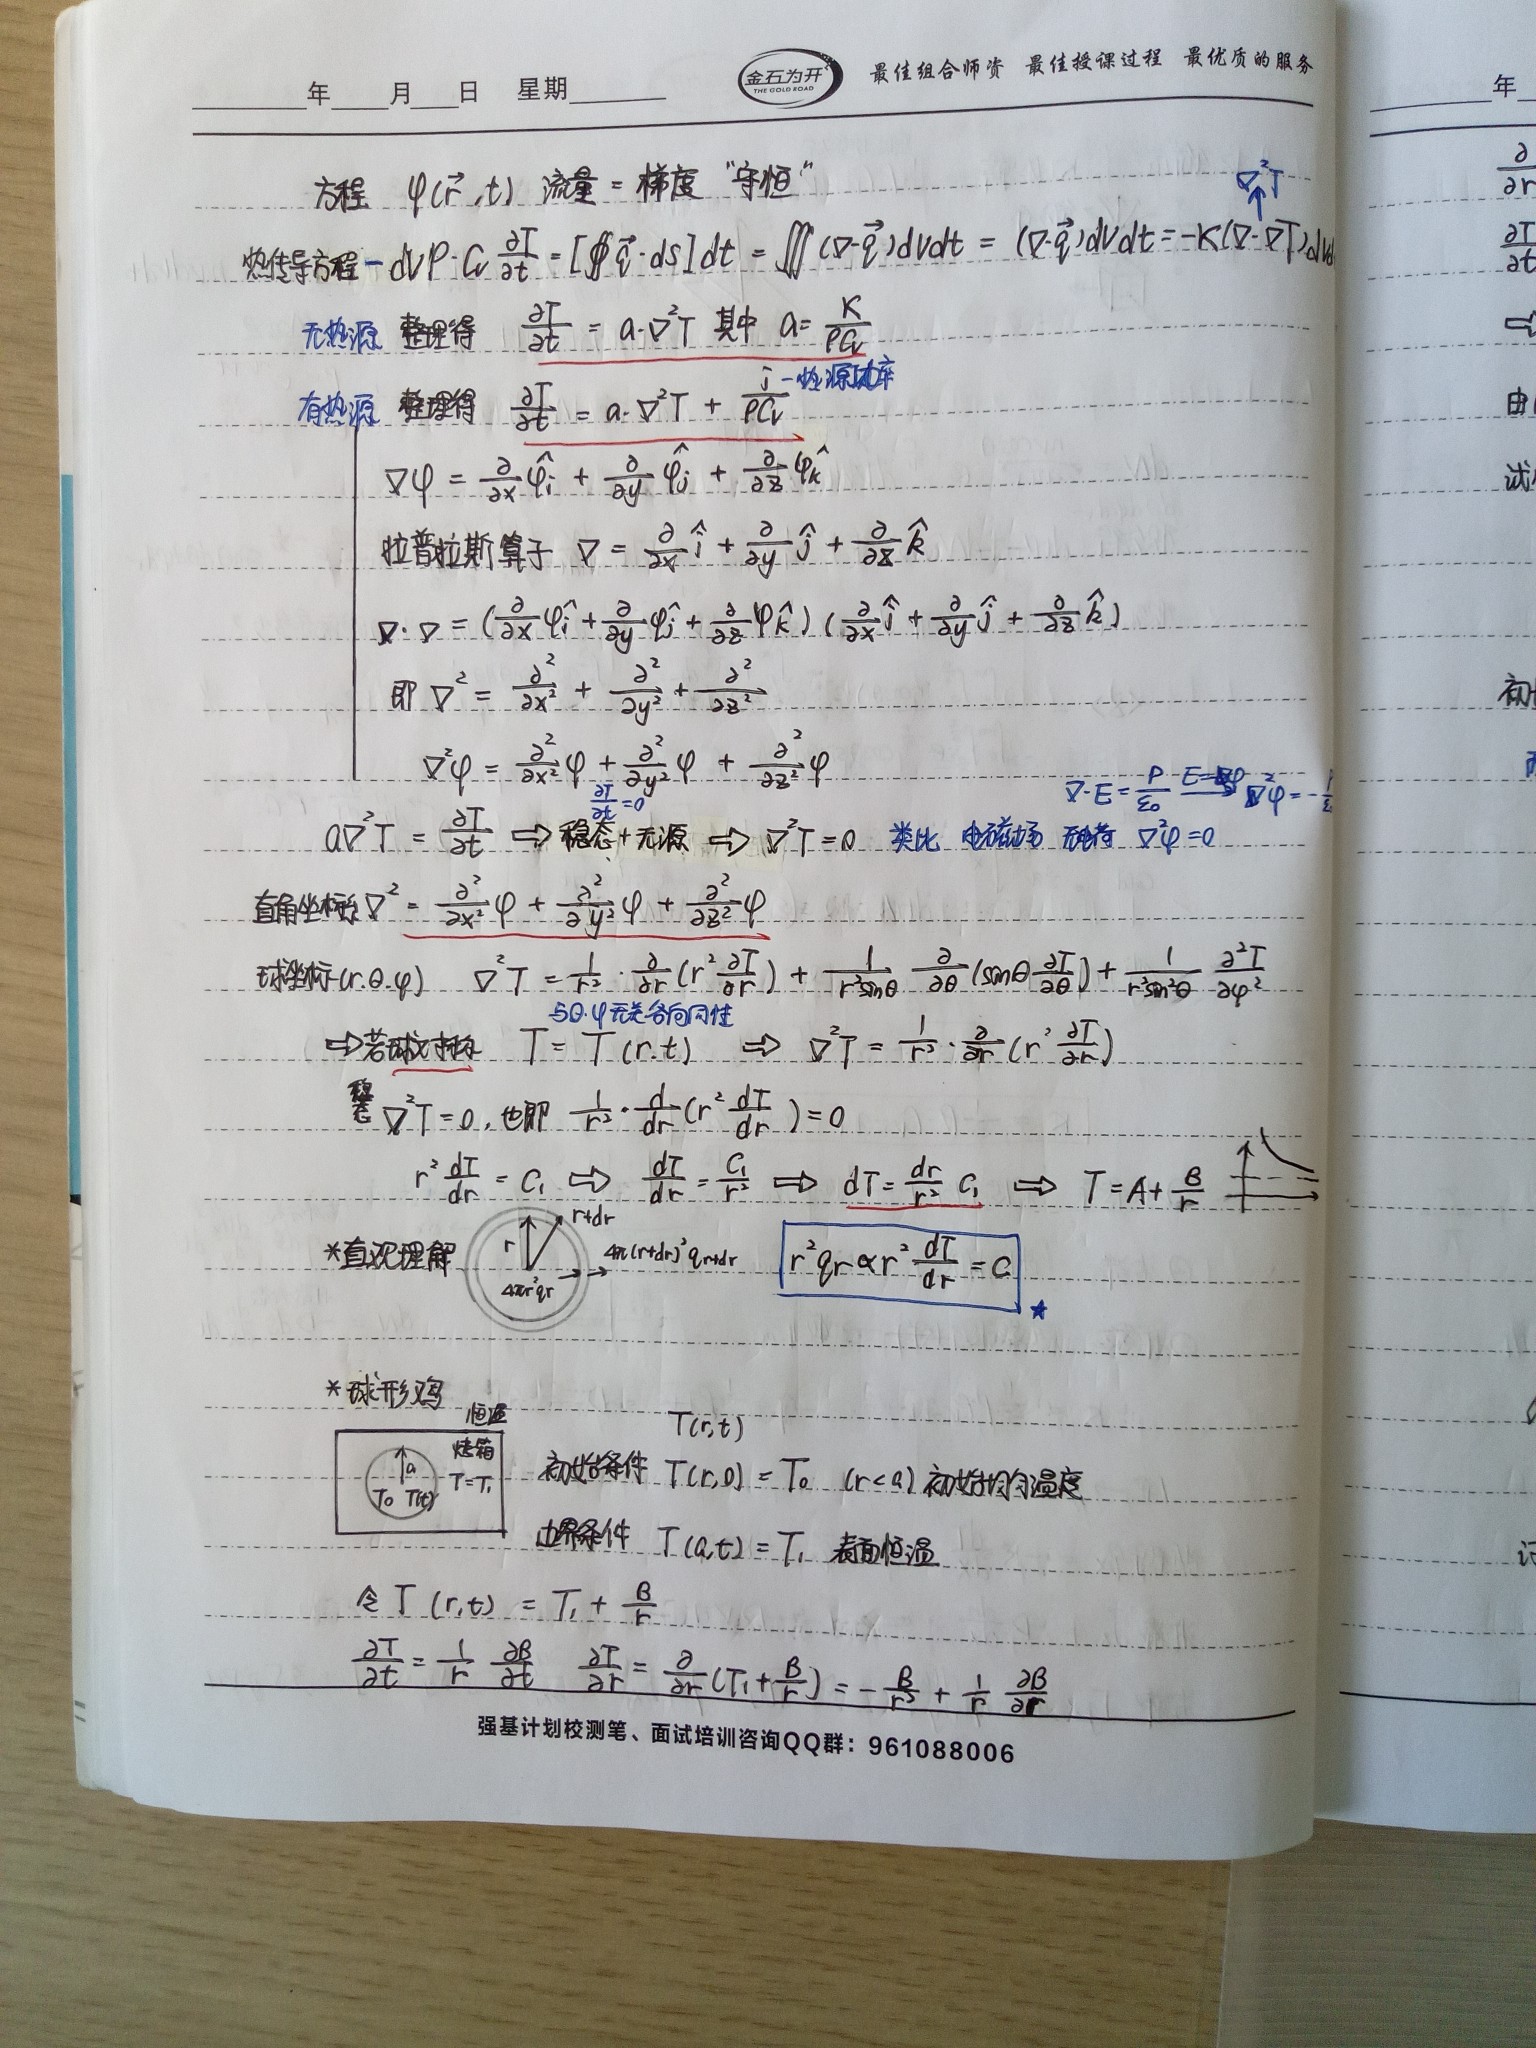 年 月 日 星期 金石为开 THE GOLD ROAD 最佳组合师资 最佳授课过程 最优质的服务
方程 φ(r⃗,t) 流量=梯度 "守恒" ∇²T
热传导方程 -dVρ·Cv ∂T/∂t = [∯q⃗·ds]dt = ∭(∇·q⃗)dVdt = (∇·q⃗)dVdt = -K(∇·∇T)dVd
无热源 整理得 ∂T/∂t = a·∇²T 其中 a = K/ρCv
有热源 整理得 ∂T/∂t = a·∇²T + j/ρCv -热源功率
∇φ = ∂/∂x φî + ∂/∂y φĵ + ∂/∂z φk̂
拉普拉斯算子 ∇ = ∂/∂x î + ∂/∂y ĵ + ∂/∂z k̂
∇·∇ = (∂/∂x φî + ∂/∂y φĵ + ∂/∂z φk̂)(∂/∂x î + ∂/∂y ĵ + ∂/∂z k̂)
即 ∇² = ∂²/∂x² + ∂²/∂y² + ∂²/∂z²
∇²φ = ∂²/∂x² φ + ∂²/∂y² φ + ∂²/∂z² φ
∂T/∂t = 0 ∇·E = ρ/ε₀ ∇²φ = -
a∇²T = ∂T/∂t ⇨ 稳态+无源 ⇨ ∇²T = 0 类比 电磁场 无电荷 ∇²φ = 0
直角坐标系 ∇² = ∂²/∂x² φ + ∂²/∂y² φ + ∂²/∂z² φ
球坐标(r.θ.φ) ∇²T = 1/r² · ∂/∂r (r² ∂T/∂r) + 1/r²sinθ ∂/∂θ (sinθ ∂T/∂θ) + 1/r²sin²θ ∂²T/∂φ²
与θ.φ无关各向同性
⇨若球对称 T = T(r.t) ⇨ ∇²T = 1/r² · ∂/∂r (r² ∂T/∂r)
稳态 ∇²T = 0, 也即 1/r² · d/dr (r² dT/dr) = 0
r² dT/dr = C₁ ⇨ dT/dr = C₁/r² ⇨ dT = dr/r² C₁ ⇨ T = A + B/r
*直观理解 r r+dr 4πr²qr 4π(r+dr)²q r+dr r²qr ∝ r² dT/dr = C ★
*球形鸡
恒温 烤箱 T=T₁ a T₀ T(t)
T(r,t)
初始条件 T(r,0) = T₀ (r<a) 初始均匀温度
边界条件 T(a,t) = T₁ 表面恒温
令 T(r,t) = T₁ + B/r
∂T/∂t = 1/r ∂B/∂t ∂T/∂r = ∂/∂r (T₁ + B/r) = -B/r² + 1/r ∂B/∂r
强基计划校测笔、面试培训咨询QQ群：961088006
年
∂/∂r
∂T/∂t
⇨
由
试
初